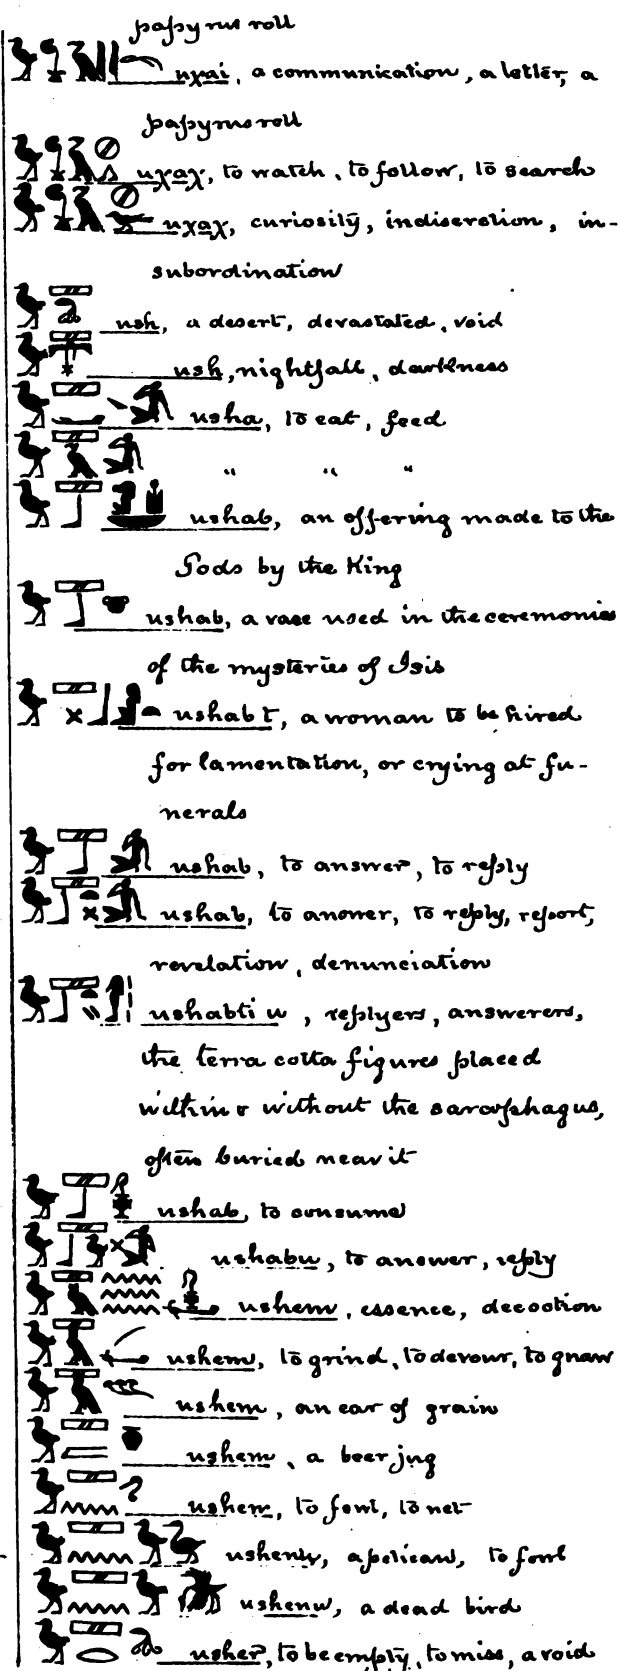 papyrus roll
uχai, a communication, a letter, a
papyrus roll
uχaχ, to watch, to follow, to search
uχaχ, curiosity, indiscretion, in-
subordination
ush, a desert, devastated, void
ush, nightfall, darkness
usha, to eat, feed
" " "
ushab, an offering made to the
Gods by the King
ushab, a vase used in the ceremonies
of the mysteries of Isis
ushab t, a woman to be hired
for lamentation, or crying at fu-
nerals
ushab, to answer, to reply
ushab, to answer, to reply, report,
revelation, denunciation
ushabti u, replyers, answerers,
the terra cotta figures placed
within or without the sarcophagus,
often buried near it
ushab, to consume
ushabu, to answer, reply
ushem, essence, decoction
ushem, to grind, to devour, to gnaw
ushem, an ear of grain
ushem, a beer jug
ushen, to fowl, to net
ushenu, a pelican, to fowl
ushenu, a dead bird
usher, to be empty, to miss, a void